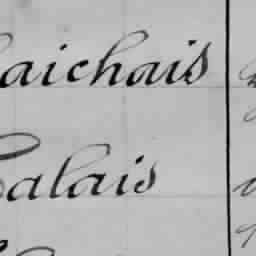 aichais
Calais